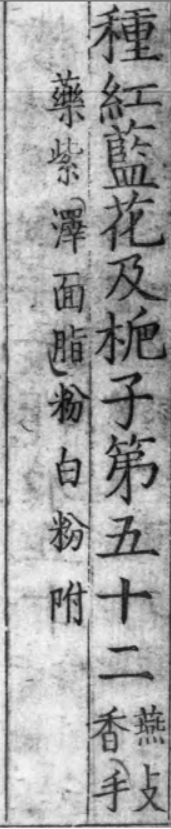 種紅藍花及栀子第五十二
燕支
香手
藥紫澤面脂粉白粉附